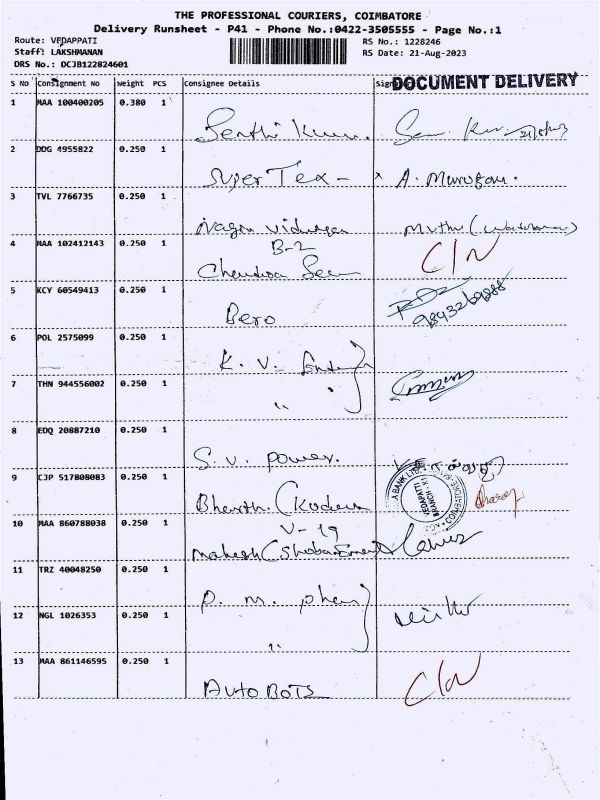 THE PROFESSIONAL COURIERS, COIMBATORE
Delivery Runsheet - P41 - Phone No.:0422-3505555 - Page No.:1
Route: VEDAPPATI
RS No.: 1228246
Staff: LAKSHMANAN
RS Date: 21-Aug-2023
DRS No.: DCJB122824601
S NO Consignment No Weight PCS Consignee Details
DOCUMENT DELIVERY
1 MAA 100400205 0.380 1
2 DDG 4955822 0.250 1
Super Tex - x A. Murugan.
3 TVL 7766735 0.250 1
B-2
4 MAA 102412143 0.250 1
Chandra C/N
5 KCY 60549413 0.250 1
Bero 9843269888
6 POL 2575099 0.250 1
K. V.
7 THN 944556002 0.250 1
"
8 EDQ 20887210 0.250 1
S. V. Power.
9 CJP 517808083 0.250 1
VEDAPATTI
BRANCH
COIMBATORE
Bharth
10 MAA 860788038 0.250 1
V-19
Mahesh
11 TRZ 40048250 0.250 1
P. M.
12 NGL 1026353 0.250 1
"
13 MAA 861146595 0.250 1
Auto BOTS C/N